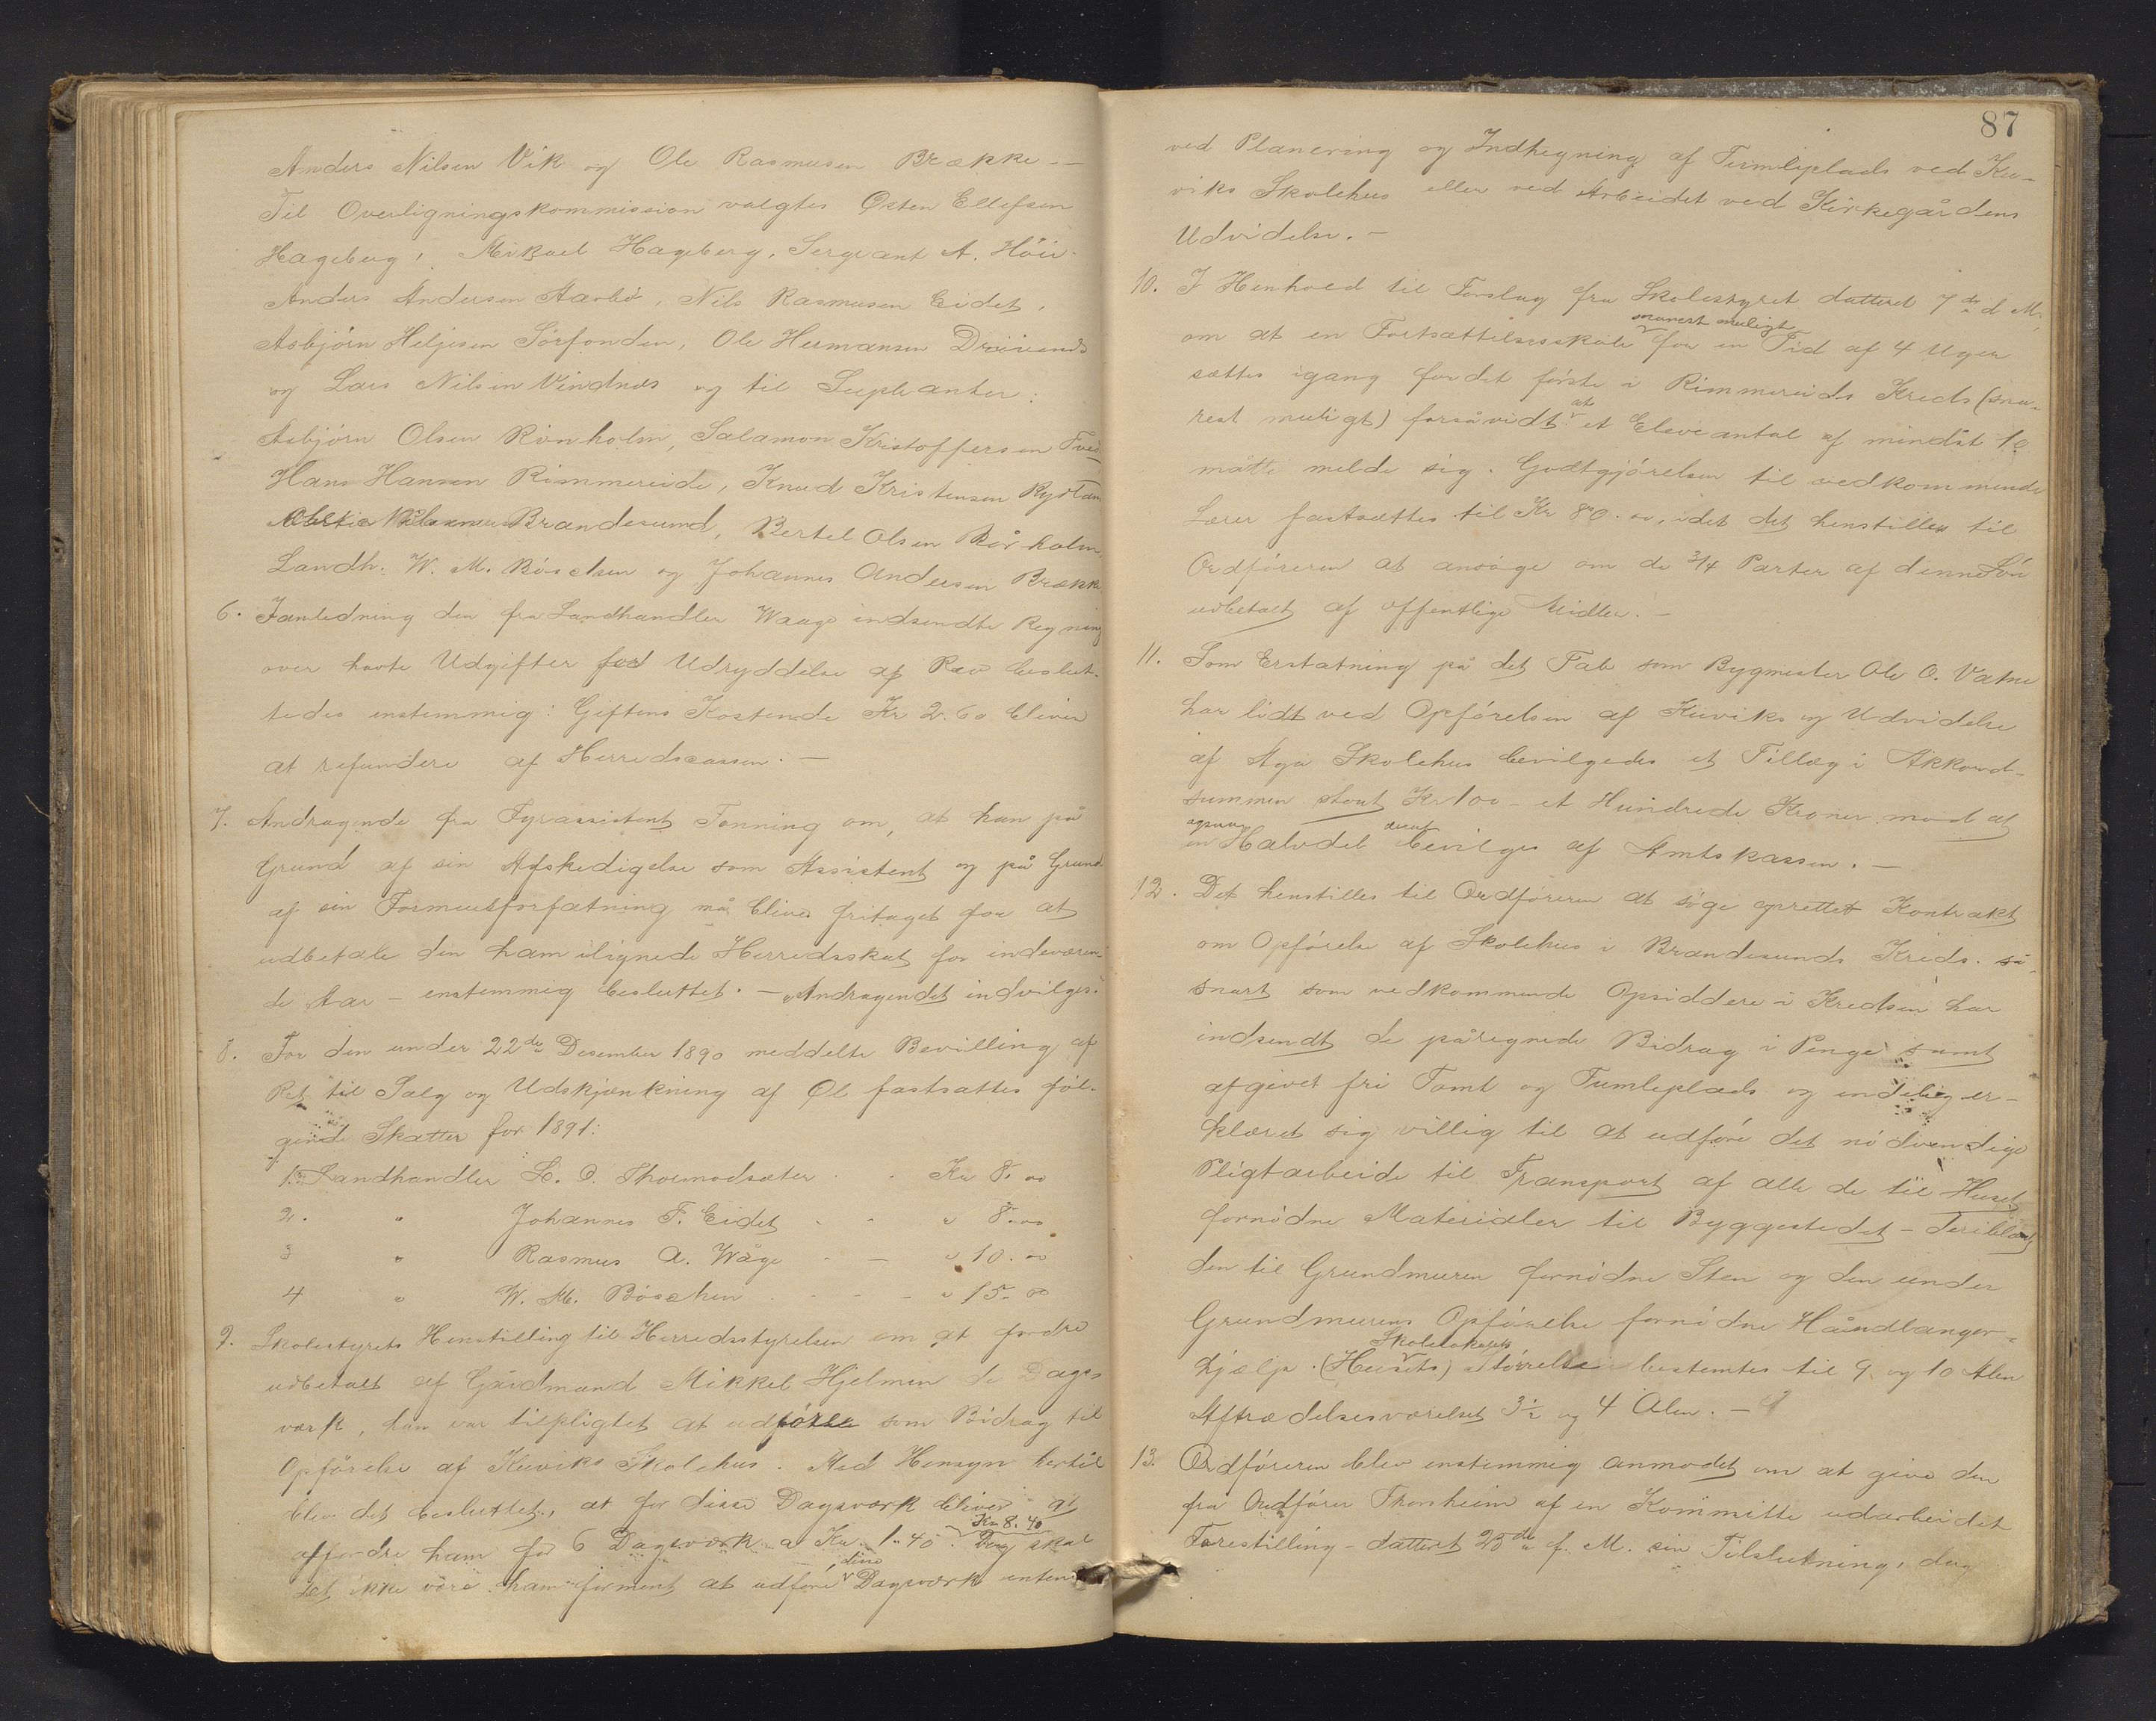 Anders Nilsen Vik og Ole Rasmusen Brække. —
Til Overligningskommission valgtes Østen Ellefsen
Hageberg, Mikael Hageberg, Sergeant A. Höie
Anders Andersen Aarbö, Nils Rasmusen Eidet,
Asbjörn Heljesen Sörfonden, Ole Hermansen
og Lars Nilsen Vindnæs og til Supleanter:
Asbjörn Olsen Rönholm, Salamon Kristoffersen
Hans Hansen Rimmereide, Knud Kristensen
Brandesund, Bertel Olsen
Landh. W. M. Böschen og Johannes Andersen Brække
6. Ianledning den fra Landhandler Waage indsendte Regning
over havte Udgifter ved Udryddelse af Ræv beslut-
tedes enstemmig: Giftens Kostende Kr 2.60 bliver
at refundere af Herredscassen. —
7. Andragende fra Fyrassistent Tønning om, at han på
Grund af sin Afskedigelse som Assistent og på Grund
af sin Formuesforfatning må blive fritaget for at
udbetale den ham ilignede Herredsskat for indeværen-
de Aar – enstemmig besluttet. — Andragendet indvilges.
8. For den under 22de Desember 1890 meddelte Bevilling af
Ret til Salg og Udskjænkning af Øl fastsattes föl-
gende Skatter for 1891:
1. Landhandler L. O. Thormodsæter . . Kr 8.00
2. " Johannes F. Eidet . . " 8.00
3 " Rasmus A. Wåge - — " 10.00
4 " W. M. Böschen . - - - " 15.00
9. Skolestyrets Henstilling til Herredsstyrelsen om at fordre
udbetalt af Gårdmand Mikkel Hjelmen de Dags-
værk, han var tilpligtet at udföre som Bidrag til
Opförelse af Kuviks Skolehus. Med Hensyn hertil
blev det besluttet, at for disse Dagsværk bliver at
Kr 8.40
affordre ham for 6 Dagsværk a Kr. 1.40. Dog skal
disse
det ikke være ham forment at udföre Dagsværk enten
87
ved Planering og Indhegning af Tumleplads ved Ku-
viks Skolehus eller ved Arbeidet ved Kirkegårdens
Udvidelse. —
10. I Henhold til Forslag fra Skolestyret datteret 7de d. M.,
snarest muligt
om at en Fortsættelsesskole for en Tid af 4 Uger
sættes igang for det förste i Rimmereids Kreds (sna-
at
rest muligt) forsåvidt et Elevantal af mindst 10
måtte melde sig. Godtgjörelsen til vedkommende
Lærer fastsættes til Kr 80.00, idet det henstilles til
Ordföreren at ansöge om de 3/4 Parter af denne Lön
udbetalt af offentlige Midler. —
11. Som Erstatning på det Tab som Bygmester Ole O. Vatne
har lidt ved Opförelsen af Kuviks og Udvidelse
af Aga Skolehus bevilgedes et Tillæg i Akkord-
summen stort Kr 100 – et Hundrede Kroner mod at
ogsaa
en Halvdel bevilges af Amtskassen. —
12. Det henstilles til Ordföreren at söge oprettet Kontrakt
om Opförelse af Skolehus i Brandesunds Kreds. så
snart som vedkommende Opsiddere i Kredsen har
indsendt de påregnede Bidrag i Penge samt
afgivet fri Tomt og Tumleplads og endelig er-
klæret sig villig til at udföre det nödvendige
Pligtarbeide til Transport af alle de til Huset
fornödne Materialer til Byggestedet – Deriblandt
den til Grundmuren fornödne Sten og den under
Grundmurens Opförelse fornödne Håndlanger-
Skolelokalets
hjælp. (Husets) Störrelse bestemtes til 9 og 10 Alen
Aftrædelsesværelset 3 1/2 og 4 Alen. —
13. Ordföreren blev enstemmig anmodet om at give den
fra Ordförer Thorsheim af en Kommitte udarbeidet
Forestilling – datteret 25de f. M. sin Tilslutning, dog